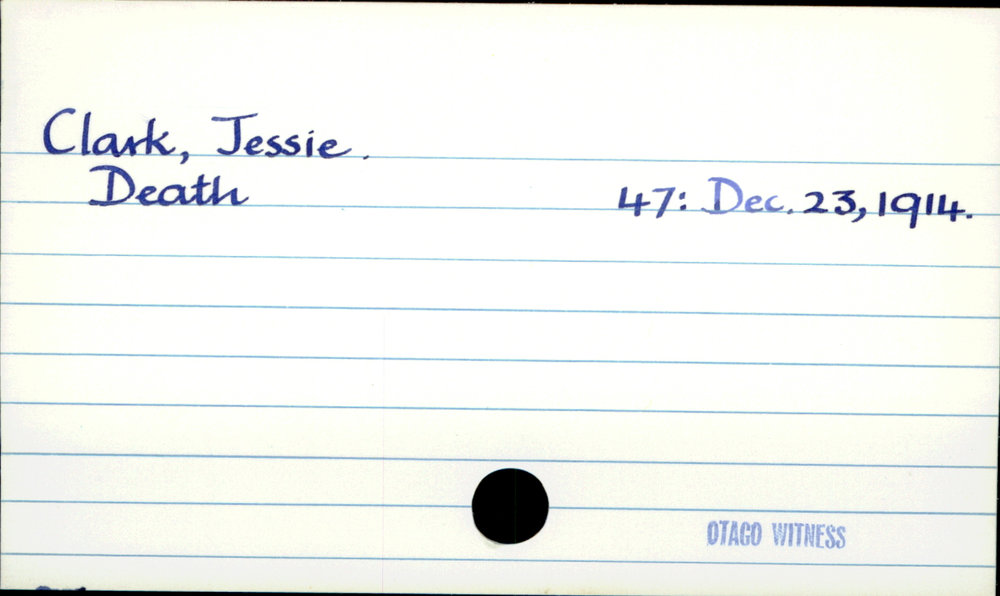 Clark, Jessie.
Death 47: Dec. 23, 1914.
OTAGO WITNESS